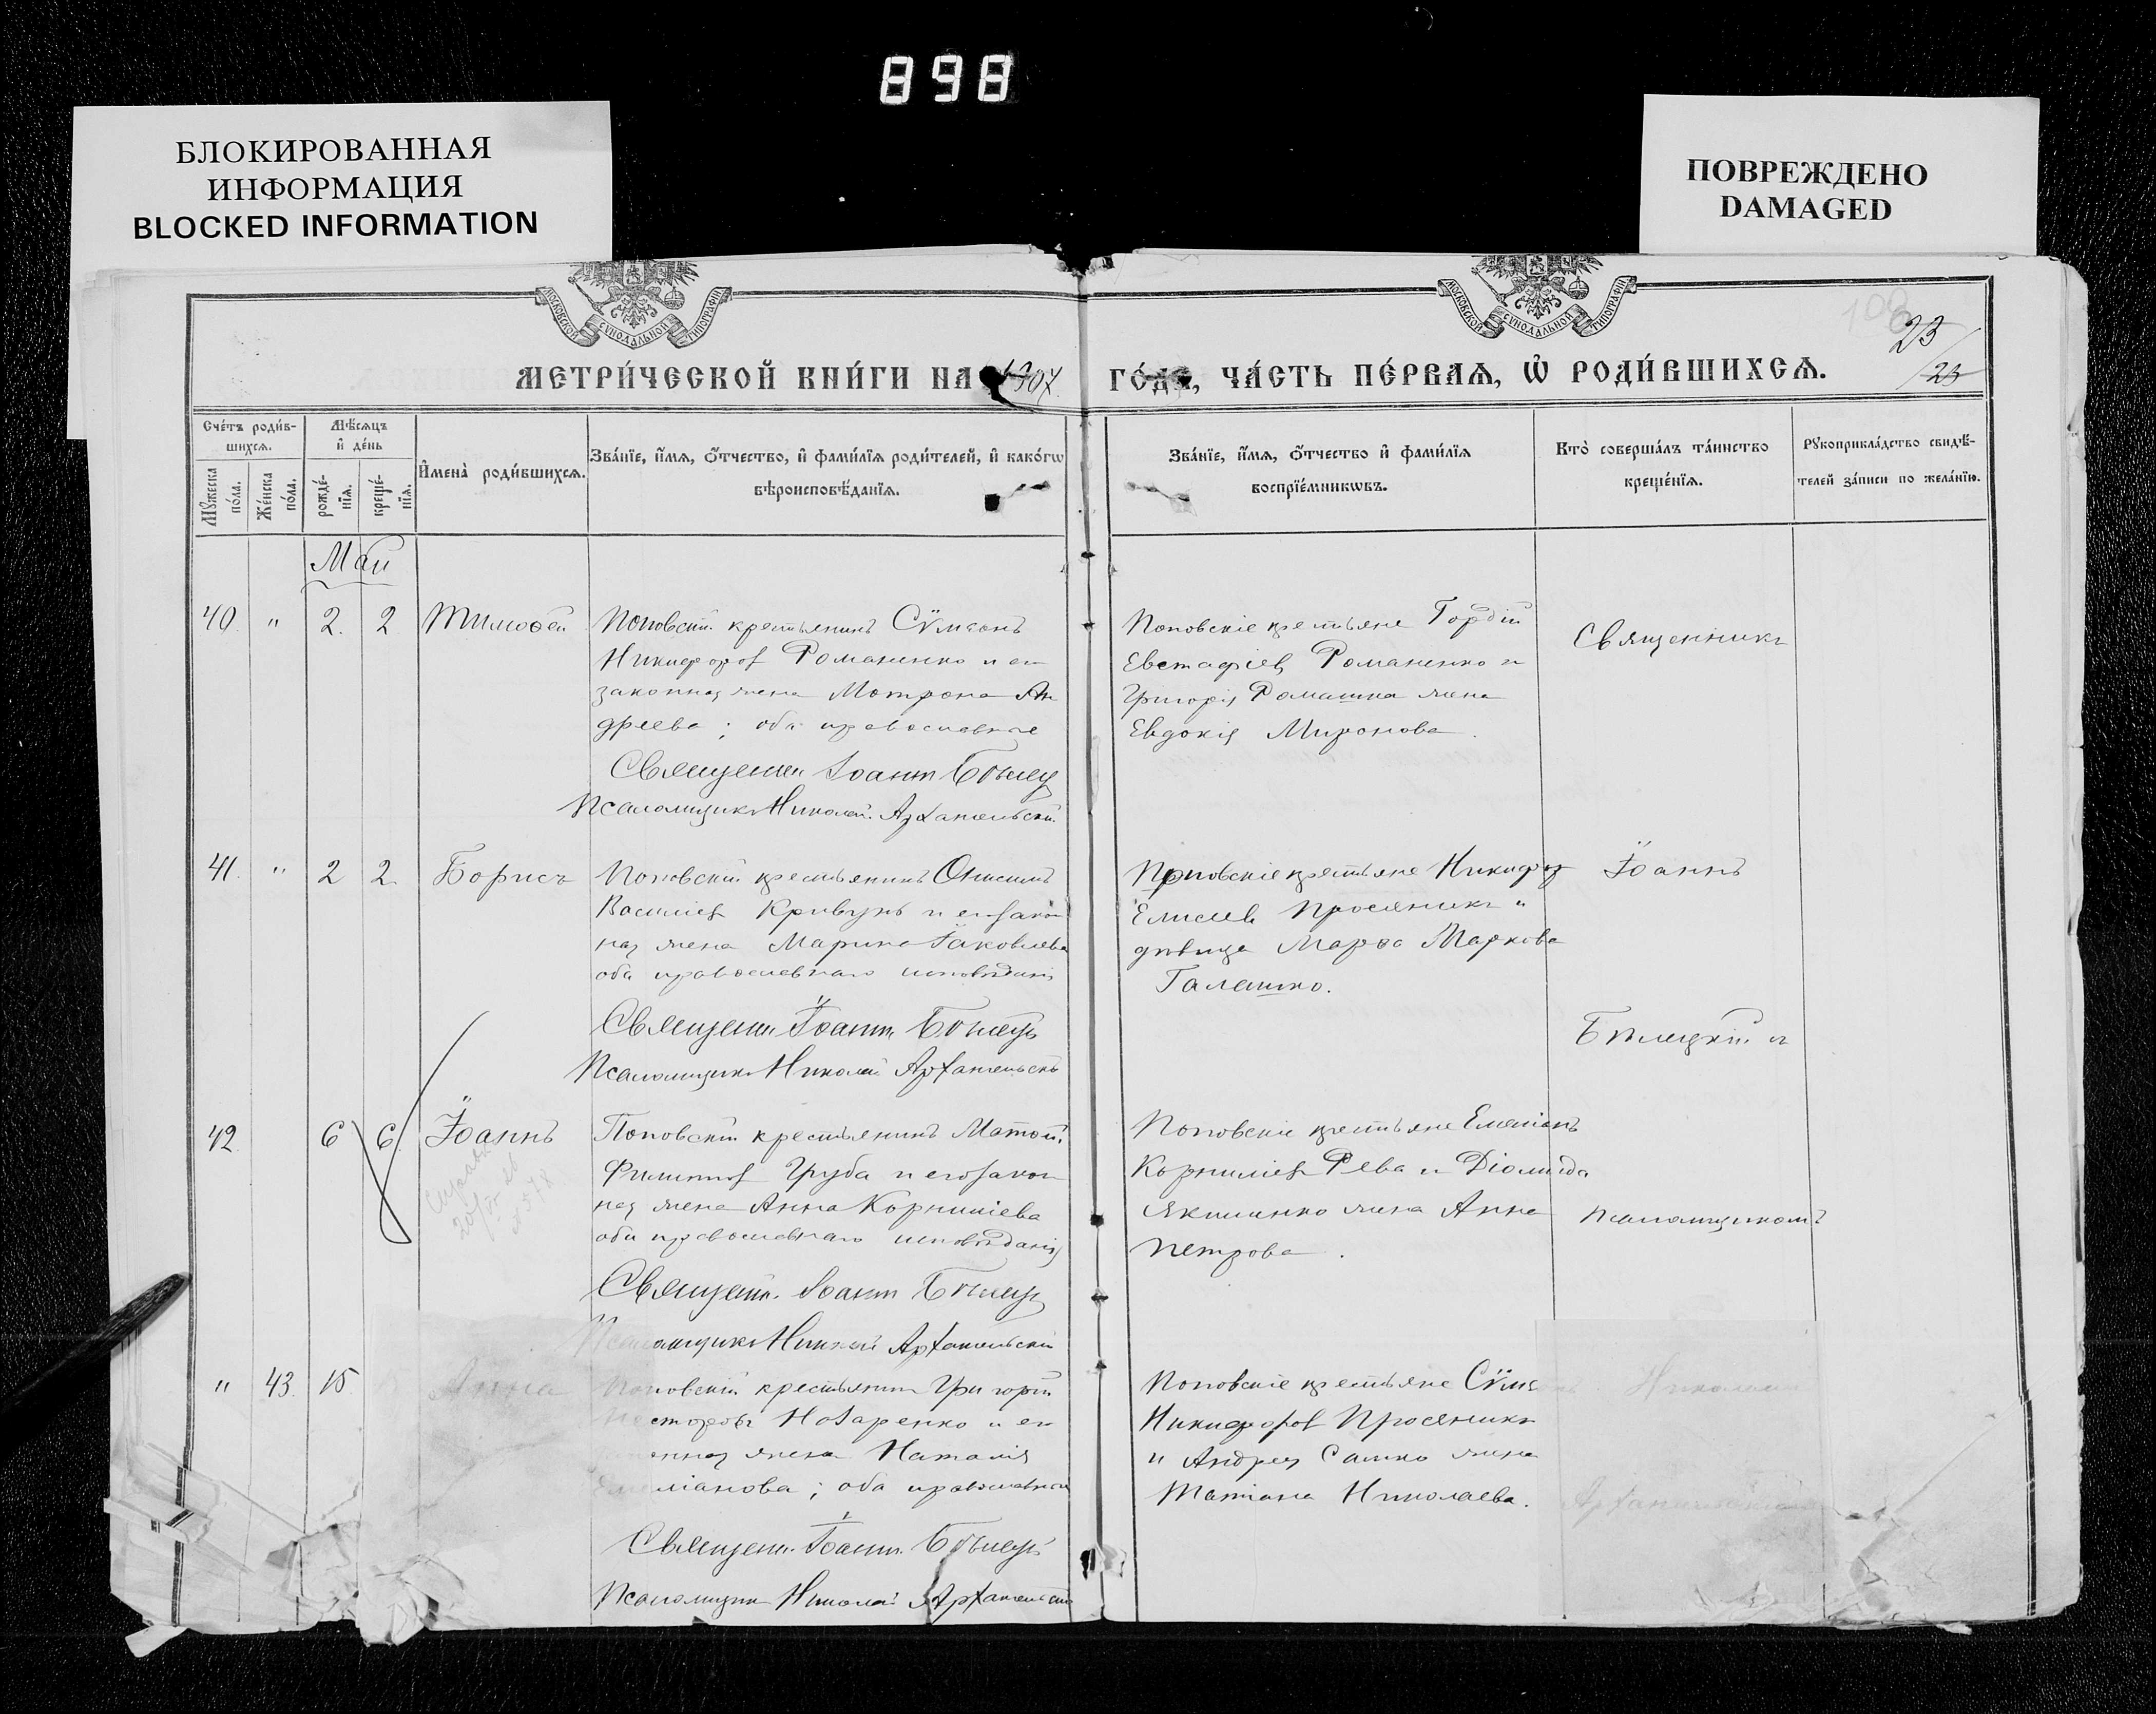 898
БЛОКИРОВАННАЯ
ИНФОРМАЦИЯ
BLOCKED INFORMATION
ПОВРЕЖДЕНО
DAMAGED
МОСКОВСКОЙ СѴНОДАЛЬНОЙ ТИПОГРАФІИ
МОСКОВСКОЙ СѴНОДАЛЬНОЙ ТИПОГРАФІИ
23
23
МЕТРИ́ЧЕСКОЙ КНИ́ГИ НА 1907 ГО́ДА, ЧА́СТЬ ПЕ́РВАѦ, Ѡ҆ РОДИ́ВШИХСѦ.
Сче́тъ роди́в-
шихсѧ.
Мѣ́сѧцъ
и҆ де́нь
Мꙋ́жеска
по́ла.
Же́нска
по́ла.
рожде́-
нїѧ.
креще́-
нїѧ.
И҆мена̀ роди́вшихсѧ.
Зва́нїе, и҆́мѧ, ѻ҆́тчество, и҆ фами́лїѧ роди́телей, и҆ како́гѡ
вѣроисповѣ́данїѧ.
Зва́нїе, и҆́мѧ, ѻ҆́тчество и҆ фами́лїѧ
воспрїе́мникѡвъ.
Кто̀ соверша́лъ та́инство
креще́нїѧ.
Рꙋкоприкла́дство свидѣ́-
телей за́писи по жела́нїю.
Май
40. " 2. 2 Тимоѳей
Поповскій крестьянинъ Сѵмеонъ
Никифоров Романенко и его
законная жена Мотрона Ан
дреева; оба православные
Священник Іоанн Бѣлец
Псаломщик Николай Архангельскій
Поповскіе крестьяне Гордій
Евстафіев Романенко и
Григорія Ромашка жена
Евдокія Миронова.
Священникъ
41. " 2 2. Борисъ
Поповскій крестьянинъ Онисимъ
Василіев Кривунъ и его закон
ная жена Марина Іаковлева
оба православнаго исповѣданія
Священн. Іоанн Бѣлецк
Псаломщик Николай Архангельскій
Поповскіе крестьяне Никифор
Елисеев Просяникъ и
дѣвица Марѳа Маркова
Галашко.
Іоаннъ
Бѣлецкій и
42. 6 6. Іоаннъ
Поповскій крестьянинъ Матѳей
Филиппов Груба и его закон
ная жена Анна Корниліева
оба православнаго исповѣданія
Священн. Іоанн Бѣлец
Псаломщик Николай Архангельскій
Поповскіе крестьяне Емеліанъ
Корниліев Рева и Діомида
Якименко жена Анна
Петрова.
псаломщикомъ
" 43. 15. Анна
Поповскій крестьянин Григорій
Несторовъ Назаренко и его
нная жена Наталія
Емеліанова; оба православные
Священн. Іоанн. Бѣлецк
Псаломщик Николай Архангельскій
Поповскіе крестьяне Сѵмеонъ
Никифоров Просяникъ
и Андрея Сашко жена
Татіана Николаева.
Николаем
Архангельским